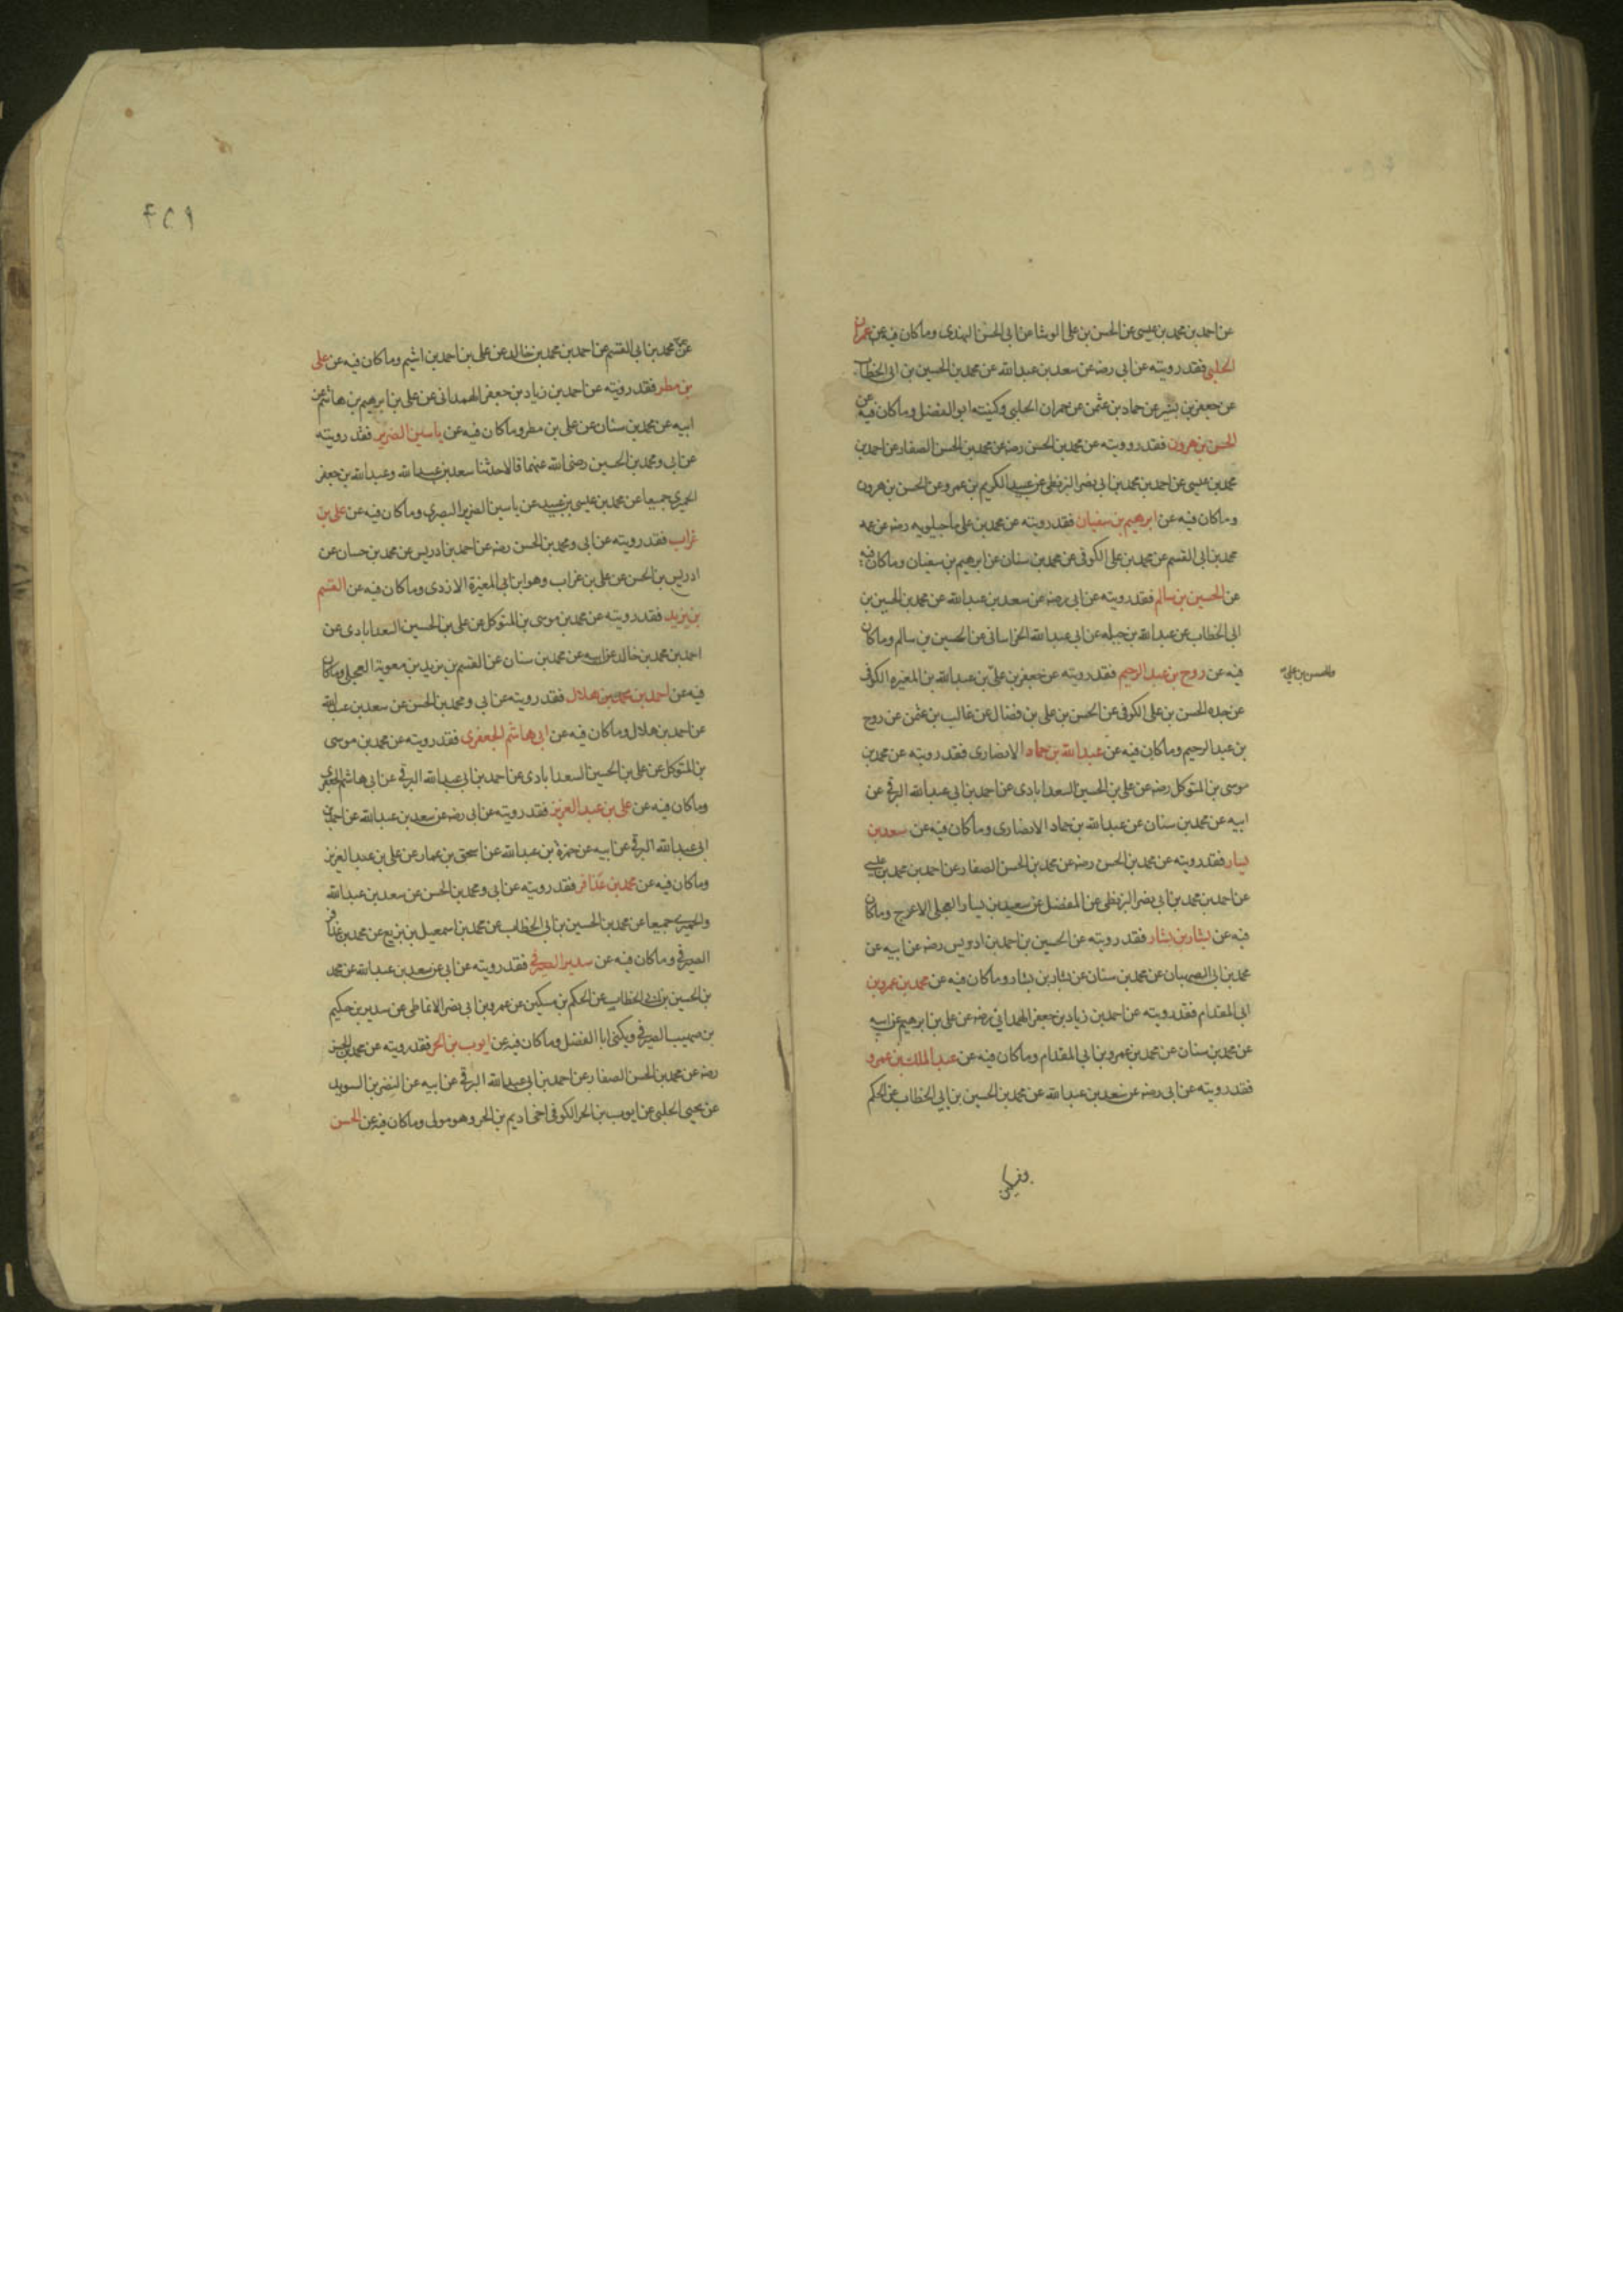 عن احمد بن محمد بن عيسى عن الحسن بن على الوشا عن ابى الحسن النهدى وما كان فيه عن عمران
الحلبى فقد رويته عن ابى رضه عن سعد بن عبد الله عن محمد بن الحسين بن ابى الخطاب
عن جعفر بن بشير عن حماد بن عثمن عن عمران الحلبى وكنيته ابو الفضل وما كان فيه عن
الحسن بن هرون فقد رويته عن محمد بن الحسن رضه عن محمد بن الحسن الصفار عن احمد بن
محمد بن عيسى عن احمد بن محمد بن ابى نصر البزنطى عن عبد الكريم بن عمرو عن الحسن بن هرون
وما كان فيه عن ابرهيم بن سفيان فقد رويته عن محمد بن على ماجيلويه رضه عن عمه
محمد بن ابى القسم عن محمد بن على الكوفى عن محمد بن سنان عن ابرهيم بن سفيان وما كان فيه
عن الحسين بن سالم فقد رويته عن ابى رضه عن سعد بن عبد الله عن محمد بن الحسين بن
ابى الخطاب عن عبد الله بن جبله عن ابى عبد الله الخراسانى عن الحسين بن سالم وما كان
فيه عن روح بن عبد الرحيم فقد رويته عن جعفر بن على بن عبد الله بن المغيره الكوفى
عن جده الحسن بن على الكوفى عن الحسن بن على بن فضال عن غالب بن عثمن عن روح
بن عبد الرحيم وما كان فيه عن عبد الله بن حماد الانصارى فقد رويته عن محمد بن
موسى بن المتوكل رضه عن على بن الحسين السعدابادى عن احمد بن ابى عبد الله البرقى عن
ابيه عن محمد بن سنان عن عبد الله بن حماد الانصارى وما كان فيه عن سعد بن
يسار فقد رويته عن محمد بن الحسن رضه عن محمد بن الحسن الصفار عن احمد بن محمد بن عيسى
عن احمد بن محمد بن ابى نصر البزنطى عن المفضل عن سعيد بن يسار العجلى الاعرج وما كان
فيه عن بشار بن بشار فقد رويته عن الحسين بن احمد بن ادريس رضه عن ابيه عن
محمد بن ابى الصهبان عن محمد بن سنان عن بشار بن بشار وما كان فيه عن محمد بن عمرو بن
ابى المقدام فقد رويته عن احمد بن زياد بن جعفر الهمدانى رضه عن على بن ابرهيم عن ابيه
عن محمد بن سنان عن محمد بن عمرو بن ابى المقدام وما كان فيه عن عبد الملك بن عمرو
فقد رويته عن ابى رضه عن سعد بن عبد الله عن محمد بن الحسين بن ابى الخطاب عن الحكم
عن عمه محمد بن ابى القسم عن احمد بن محمد بن خالد عن على بن احمد بن اشيم وما كان فيه عن على
بن مطر فقد رويته عن احمد بن زياد بن جعفر الهمدانى عن على بن ابرهيم بن هاشم عن
ابيه عن محمد بن سنان عن على بن مطر وما كان فيه عن ياسين الضرير فقد رويته
عن ابى ومحمد بن الحسين رضى الله عنهما قالا حدثنا سعد بن عبد الله وعبد الله بن جعفر
الحميرى جميعا عن محمد بن عيسى بن عبيد عن ياسين الضرير البصرى وما كان فيه عن على بن
غراب فقد رويته عن ابى ومحمد بن الحسن رضه عن احمد بن ادريس عن محمد بن حسان عن
ادريس بن الحسن عن على بن غراب وهو ابن ابى المغيرة الازدى وما كان فيه عن القسم
بن يزيد فقد رويته عن محمد بن موسى بن المتوكل عن على بن الحسين السعدابادى عن
احمد بن محمد بن خالد عن ابيه عن محمد بن سنان عن القسم بن بزيد بن معوية العجلى وما كان
فيه عن احمد بن محمد بن هلال فقد رويته عن ابى ومحمد بن الحسن عن سعد بن عبد الله
عن احمد بن هلال وما كان فيه عن ابى هاشم الجعفرى فقد رويته عن محمد بن موسى
بن المتوكل عن على بن الحسين السعدابادى عن احمد بن ابى عبد الله البرقى عن ابى هاشم الجعفرى
وما كان فيه عن على بن عبد العزيز فقد رويته عن ابى رضه عن سعد بن عبد الله عن احمد بن
ابى عبد الله البرقى عن ابيه عن حمزة بن عبد الله عن اسحق بن عمار عن على بن عبد العزيز
وما كان فيه عن محمد بن عذافر فقد رويته عن ابى ومحمد بن الحسن عن سعد بن عبد الله
والحميرى جميعا عن محمد بن الحسين بن ابى الخطاب عن محمد بن اسمعيل بن بزيع عن محمد بن عذافر
الصيرفى وما كان فيه عن سدير الصيرفى فقد رويته عن ابى عن سعد بن عبد الله عن محمد
بن الحسين بن ابى الخطاب عن الحكم بن مسكين عن عمرو بن ابى نصر الانماطى عن سدير بن حكيم
بن صهيب الصيرفى ويكنى ابا الفضل وما كان فيه عن ايوب بن الحر فقد رويته عن محمد بن الحسن
رضه عن محمد بن الحسن الصفار عن احمد بن ابى عبد الله البرقى عن ابيه عن النضر بن السويد
عن يحيى الحلبى عن ايوب بن الحر الكوفى اخى اديم بن الحر وهو مولى وما كان فيه عن الحسن